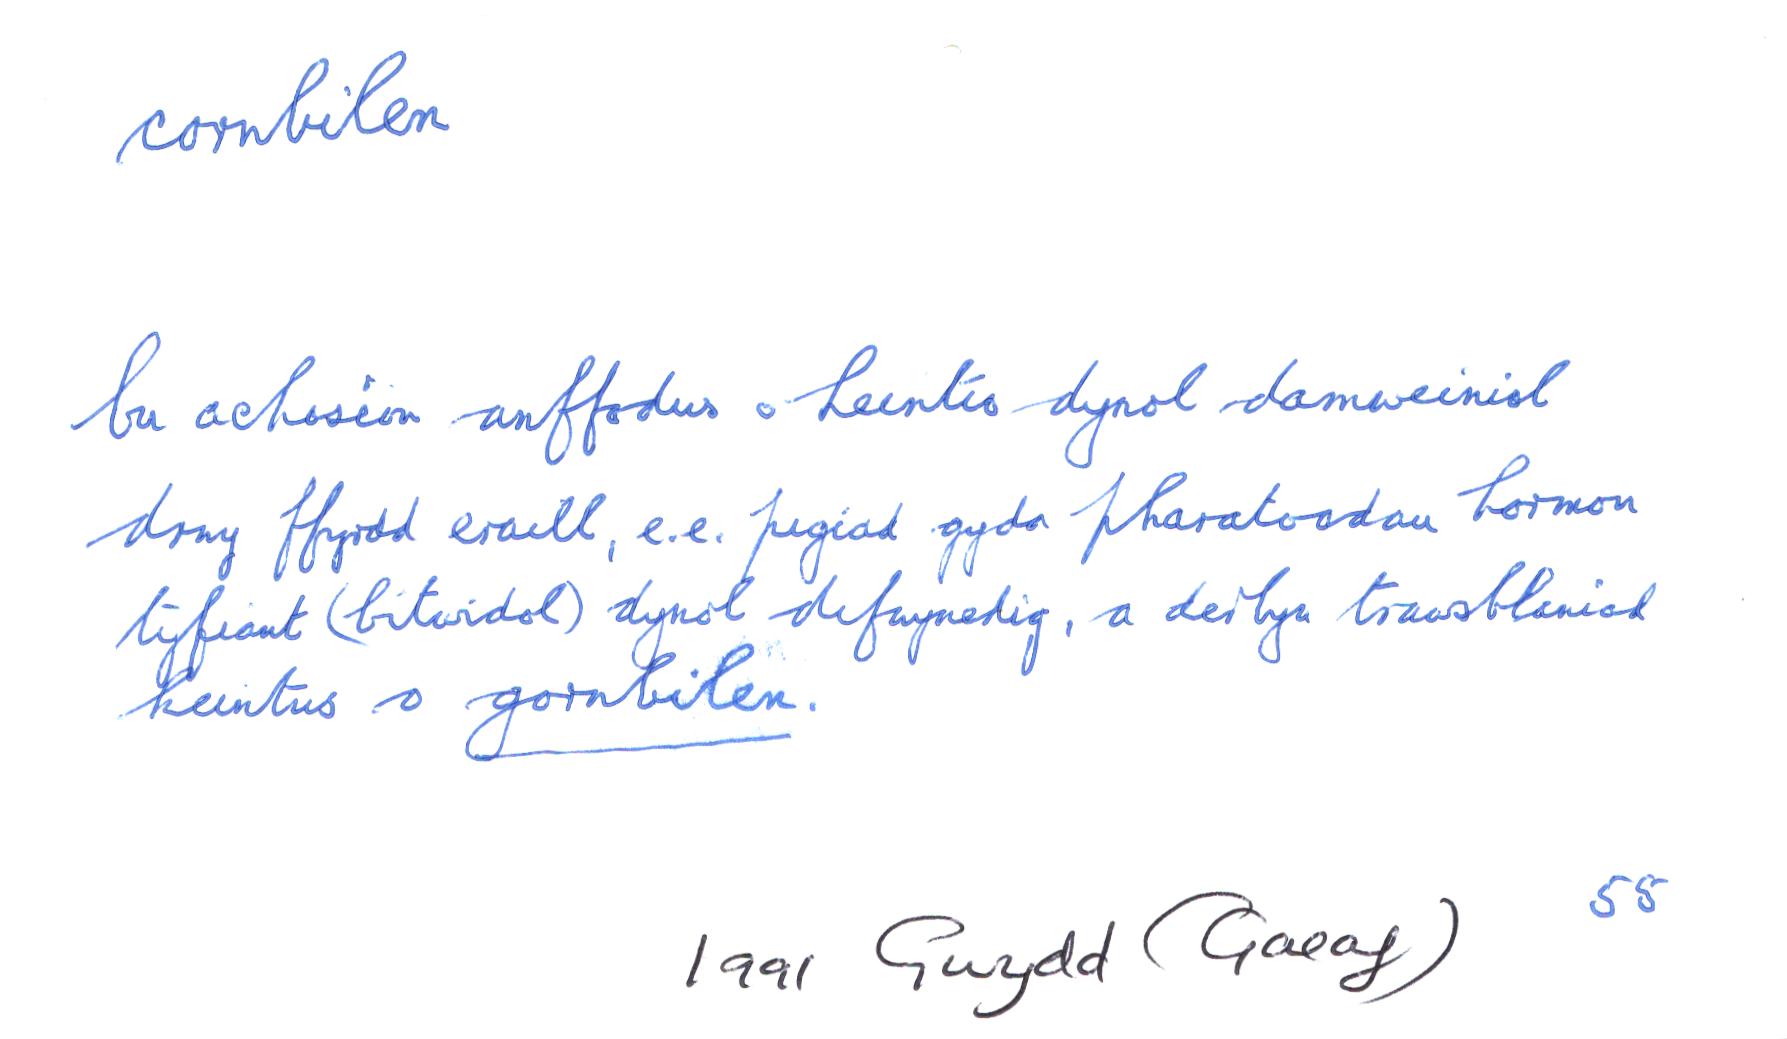 cornbilen
bu achosion anffodus o heintio dynol damweiniol
drwy ffyrdd eraill, e.e. pigiad gyda pharatoadau hormon
tyfiant (bitwidol) dynol defnynedig, a derbyn trawsblaniad
heintus o gornbilen.
55
1991 Gwydd (Gaeaf)